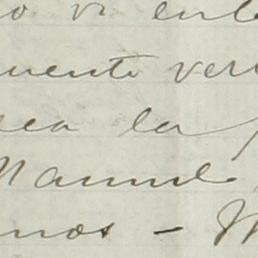 o vi enl
uente ver
sea la
Manuel
nos — M